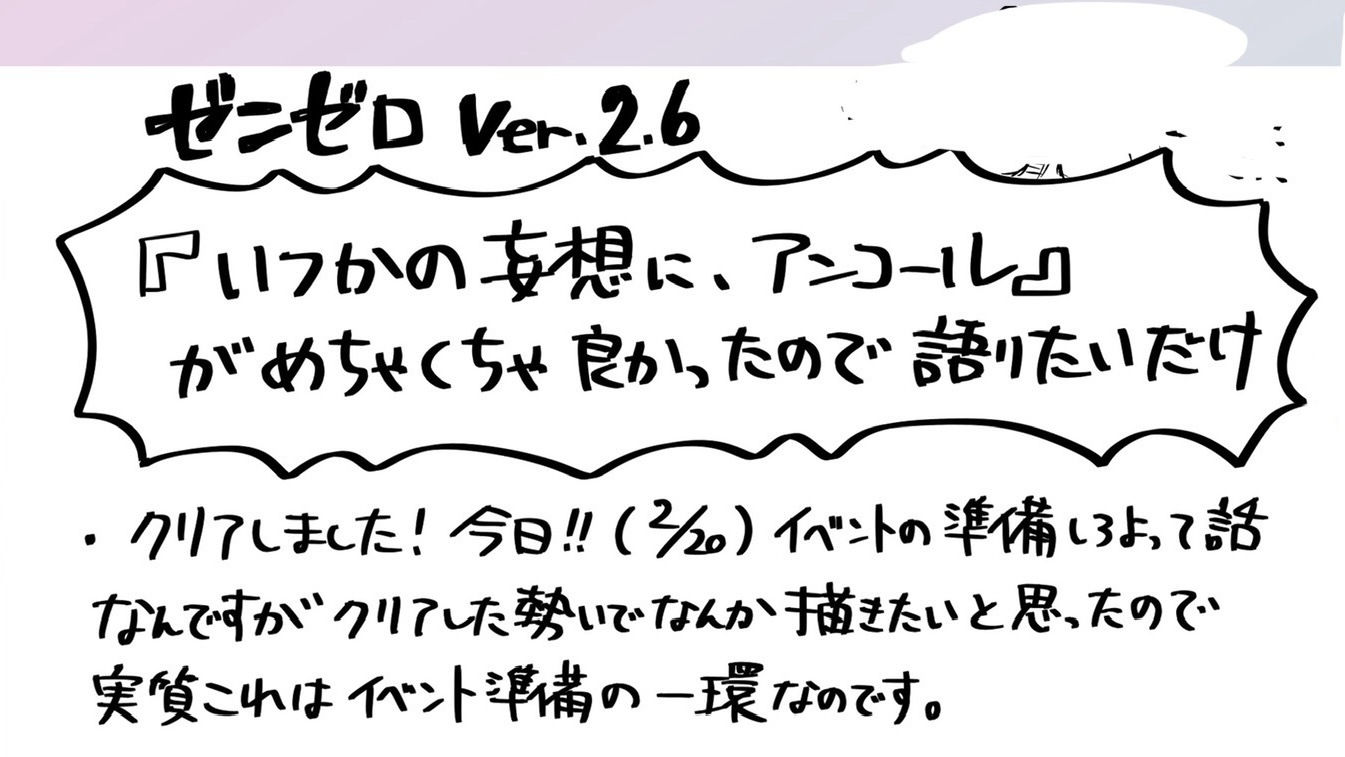 ゼンゼロ Ver.2.6
『いつかの妄想に、アンコール』
がめちゃくちゃ良かったので語りたいだけ
・クリアしました！今日!!(2/20)イベントの準備しろよって話
なんですがクリアした勢いでなんか描きたいと思ったので
実質これはイベント準備の一環なのです。